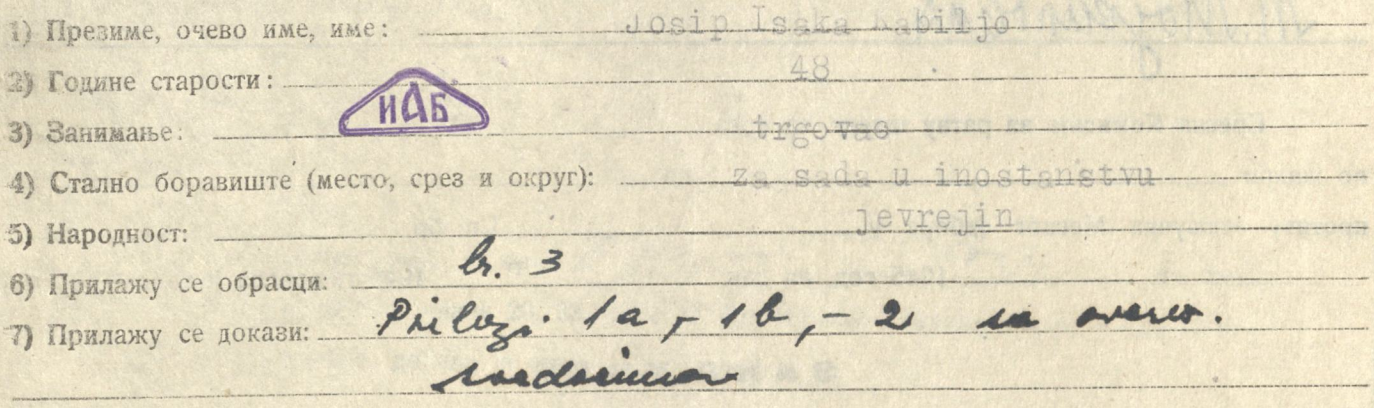 1) Презиме, очево име, име: Josip Isaka Kabiljo
2) Године старости: 48
ИАБ
3) Занимање: trgovac
4) Стално боравиште (место, срез и округ): za sada u inostanstvu
5) Народност: jevrejin
6) Прилажу се обрасци: br. 3
7) Прилажу се докази: Prilozi 1a, - 1b, - 2 sa